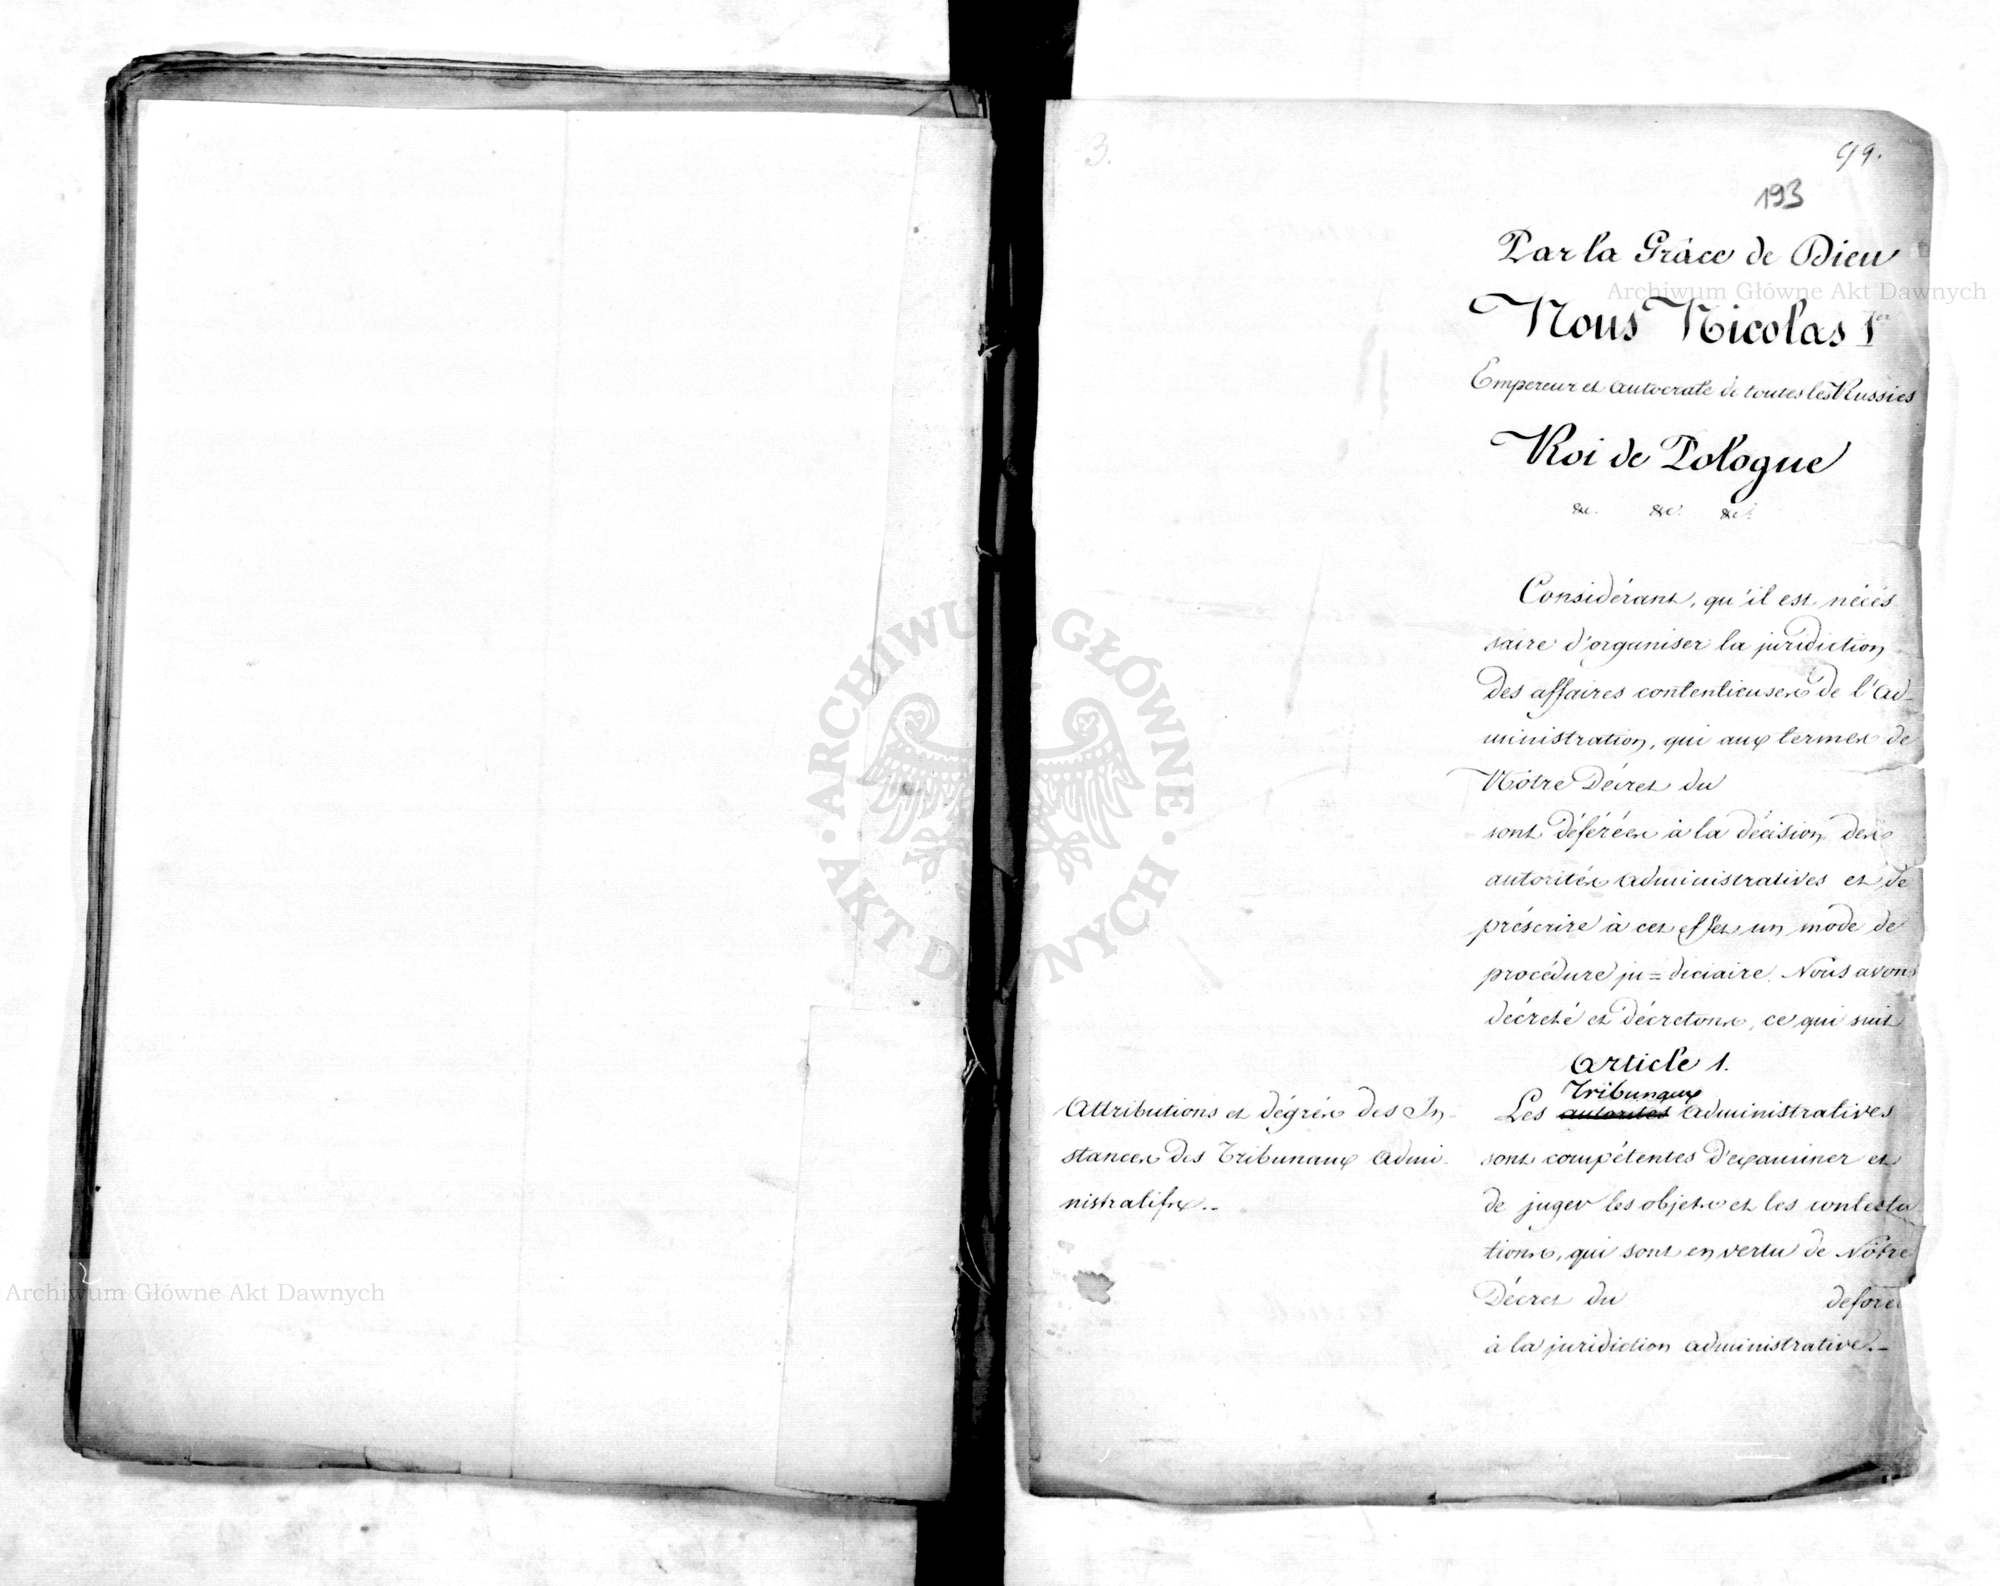 3.
99.
193
Par la Grâce de Dieu
Nous Nicolas Ier
Empereur et Autocrate de toutes les Russies
Roi de Pologne
&c. &c. &c.
Considérant, qu'il est nécés
saire d'organiser la juridiction
des affaires contentieuses de l'Ad-
ministration, qui aux termes de
Nôtre Décret du
sont déférées à la décision des
autorités administratives et de
préscrire à cet effet un mode de
procédure ju=diciaire. Nous avons
décreté et décretons, ce qui suit
Article 1.
Tribunaux
Les autorités administratives
sont compétentes d'examiner et
de juger les objets et les contesta
tions, qui sont en vertu de Nôtre
Décret du deferé
à la juridiction administrative.-
Attributions et dégrés des In-
stances des Tribunaux Admi-
nistratifs.-
Archiwum Główne Akt Dawnych
Archiwum Główne Akt Dawnych
ARCHIWUM GŁÓWNE
· AKT DAWNYCH ·